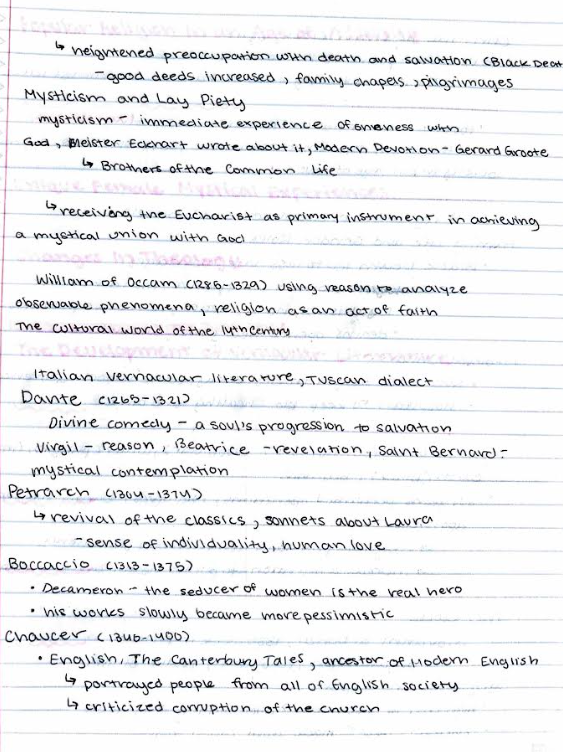 Popular Religion in an Age of Adversity
↳ heightened preoccupation with death and salvation (Black Deat
- good deeds increased, family chapels, pilgrimages
Mysticism and Lay Piety
mysticism - immediate experience of oneness with
God, Meister Eckhart wrote about it, Modern Devotion - Gerard Groote
↳ Brothers of the Common Life
Unique Female Mystical Experiences
↳ receiving the Eucharist as primary instrument in achieving
a mystical union with God
Changes in Theology
William of Occam (1285-1329) using reason to analyze
observable phenomena, religion as an act of faith
The Cultural World of the 14th Century
The Development of Vernacular Literature
Italian vernacular literature, Tuscan dialect
Dante (1265-1321)
Divine comedy - a soul's progression to salvation
Virgil - reason, Beatrice - revelation, Saint Bernard -
mystical contemplation
Petrarch (1304-1374)
↳ revival of the classics, sonnets about Laura
- sense of individuality, human love
Boccaccio (1313-1375)
• Decameron - the seducer of women is the real hero
• his works slowly became more pessimistic
Chaucer (1340-1400)
• English, The Canterbury Tales, ancestor of Modern English
↳ portrayed people from all of English society
↳ criticized corruption of the church